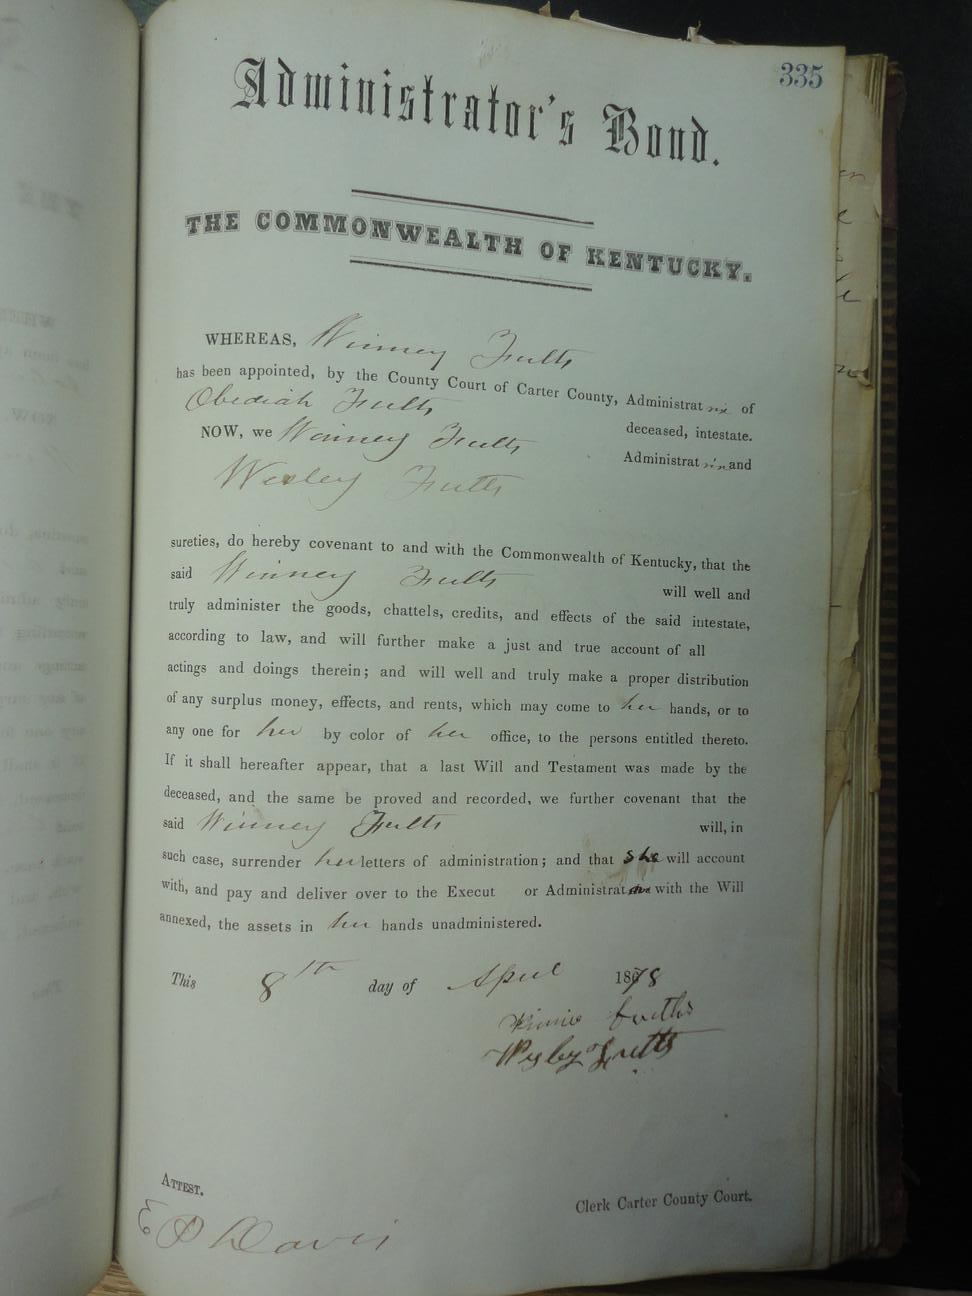 335
Administrator's Bond.
THE COMMONWEALTH OF KENTUCKY.
WHEREAS, Winney Fults
has been appointed, by the County Court of Carter County, Administratrix of
Obediah Fults deceased, intestate.
NOW, we Winney Fults Administratrix and
Wesley Fults
sureties, do hereby covenant to and with the Commonwealth of Kentucky, that the
said Winney Fults will well and
truly administer the goods, chattels, credits, and effects of the said intestate,
according to law, and will further make a just and true account of all
actings and doings therein; and will well and truly make a proper distribution
of any surplus money, effects, and rents, which may come to her hands, or to
any one for her by color of her office, to the persons entitled thereto.
If it shall hereafter appear, that a last Will and Testament was made by the
deceased, and the same be proved and recorded, we further covenant that the
said Winney Fults will, in
such case, surrender her letters of administration; and that she will account
with, and pay and deliver over to the Execut or Administrat with the Will
annexed, the assets in her hands unadministered.
This 8th day of April 1878
Winnie Fults
Wesley Fults
ATTEST.
Clerk Carter County Court.
E P Davis